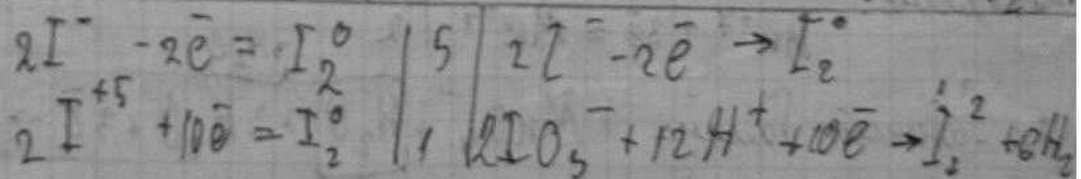 2I⁻ -2ē = I₂⁰ | 5 | 2I⁻ -2ē → I₂⁰
2I⁺⁵ +10ē = I₂⁰ | 1 | 2IO₃⁻ + 12H⁺ +10ē → I₂ +6H₂